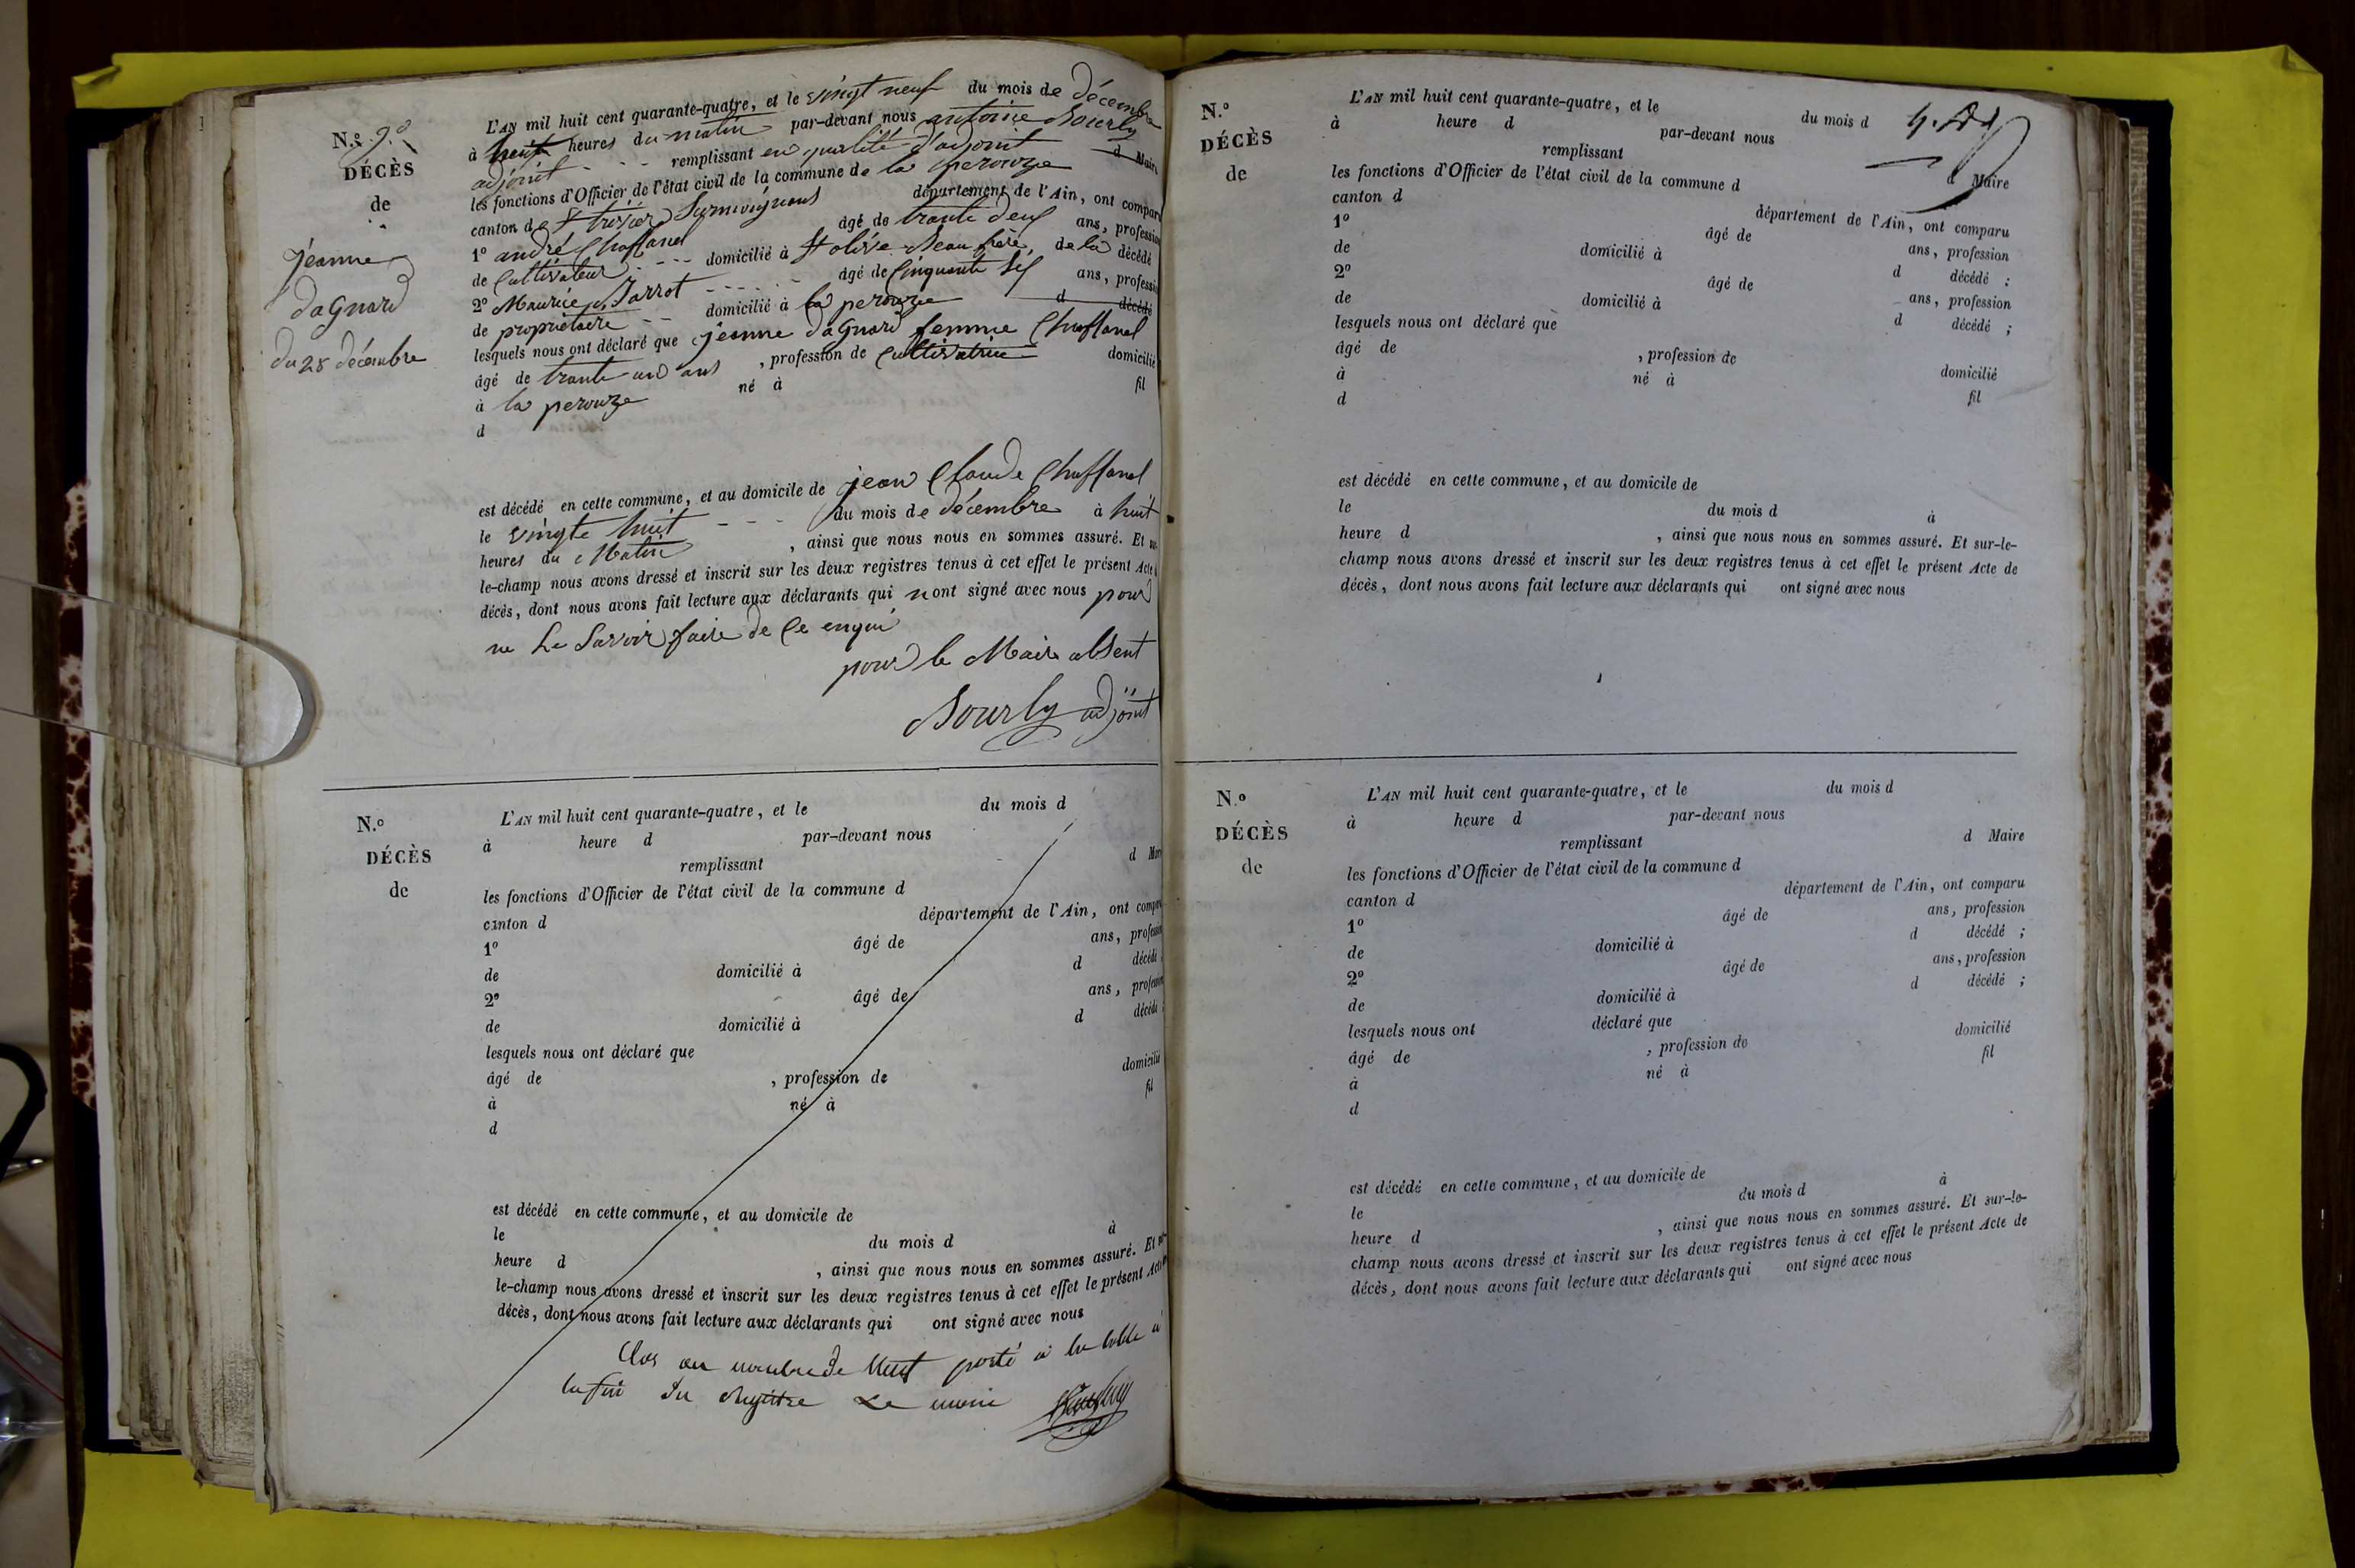 N.o 9.e
DÉCÈS
de
jeanne
daGnard
du 28 décembre
L'AN mil huit cent quarante-quatre, et le vingt neuf du mois de décembre
à heures du matin par-devant nous antoine Bourly
adjoint - - - remplissant en qualité d'adjoint d Maire
les fonctions d'Officier de l'état civil de la commune de la perouze
canton de St trivier Surmoignans département de l'Ain, ont comparu
1o andré Chaffanel âgé de trante deux ans, profession
de Cultivateur - - - domicilié à St olive Beau frère de la décédé
2o Maurice Jarrot - - - - - âgé de Cinquante Six ans, profession
de propriétaire - - domicilié à la perouze d décédé
lesquels nous ont déclaré que jeanne daGnard femme Chaffanel
âgé de trante un ans , profession de Cultivatrice domicilié
à la perouze né à fil
d
est décédé en cette commune, et au domicile de jean Claude Chaffanel
le vingte huit - - - du mois de décembre à huit
heures du Matin , ainsi que nous nous en sommes assuré. Et sur-
le-champ nous avons dressé et inscrit sur les deux registres tenus à cet effet le présent Acte
décès, dont nous avons fait lecture aux déclarants qui nont signé avec nous pour
ne Le Savoir faire de Ce enqui
pour le Maire absent
Bourly adjoint
N.o
DÉCÈS
de
L'AN mil huit cent quarante-quatre, et le du mois d
à heure d par-devant nous
remplissant d Mair
les fonctions d'Officier de l'état civil de la commune d
canton d département de l'Ain, ont compar
1o âgé de ans, profession
de domicilié à d décédé
2o âgé de ans, profession
de domicilié à d décédé ;
lesquels nous ont déclaré que
âgé de , profession de domicilié
à né à fil
d
est décédé en cette commune, et au domicile de
le du mois d à
heure d , ainsi que nous nous en sommes assuré. Et sur-
le-champ nous avons dressé et inscrit sur les deux registres tenus à cet effet le présent Acte
décès, dont nous avons fait lecture aux déclarants qui ont signé avec nous
Clos au nombre de Neuf porté à la table à
la fin du Registre Le maire
N.o
DÉCÈS
de
L'AN mil huit cent quarante-quatre, et le du mois d
à heure d par-devant nous
remplissant d Maire
les fonctions d'Officier de l'état civil de la commune d
canton d département de l'Ain, ont comparu
1o âgé de ans, profession
de domicilié à d décédé ;
2o âgé de ans, profession
de domicilié à d décédé ;
lesquels nous ont déclaré que
âgé de , profession de domicilié
à né à fil
d
est décédé en cette commune, et au domicile de
le du mois d à
heure d , ainsi que nous nous en sommes assuré. Et sur-le-
champ nous avons dressé et inscrit sur les deux registres tenus à cet effet le présent Acte de
décès, dont nous avons fait lecture aux déclarants qui ont signé avec nous
N.o
DÉCÈS
de
L'AN mil huit cent quarante-quatre, et le du mois d
à heure d par-devant nous
remplissant d Maire
les fonctions d'Officier de l'état civil de la commune d
canton d département de l'Ain, ont comparu
1o âgé de ans, profession
de domicilié à d décédé ;
2o âgé de ans, profession
de domicilié à d décédé ;
lesquels nous ont déclaré que
âgé de , profession de domicilié
à né à fil
d
est décédé en cette commune, et au domicile de
le du mois d à
heure d , ainsi que nous nous en sommes assuré. Et sur-le-
champ nous avons dressé et inscrit sur les deux registres tenus à cet effet le présent Acte de
décès, dont nous avons fait lecture aux déclarants qui ont signé avec nous